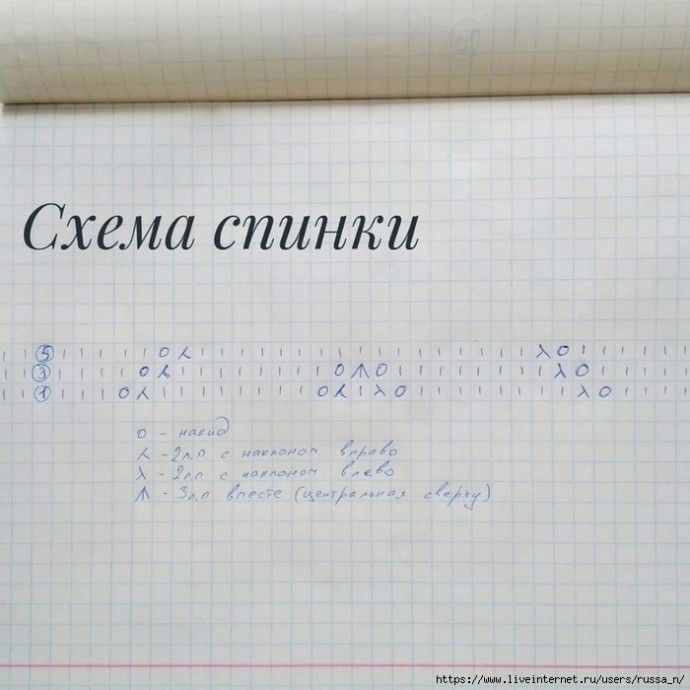 Схема спинки
| | 5 | | | | | O ⅄ | | | | | | | | | | | | | | | | | λ O | | | | | |
| | 3 | | | | O ⅄ | | | | | | | | O ⩚ O | | | | | | | | λ O | | | | |
| | 1 | | | O ⅄ | | | | | | | | O ⅄ | λ O | | | | | | | | λ O | | | |
O - накид
⅄ - 2л.п с наклоном вправо
λ - 2л.п с наклоном влево
⩚ - 3л.п вместе (центральная сверху)
https://www.liveinternet.ru/users/russa_n/